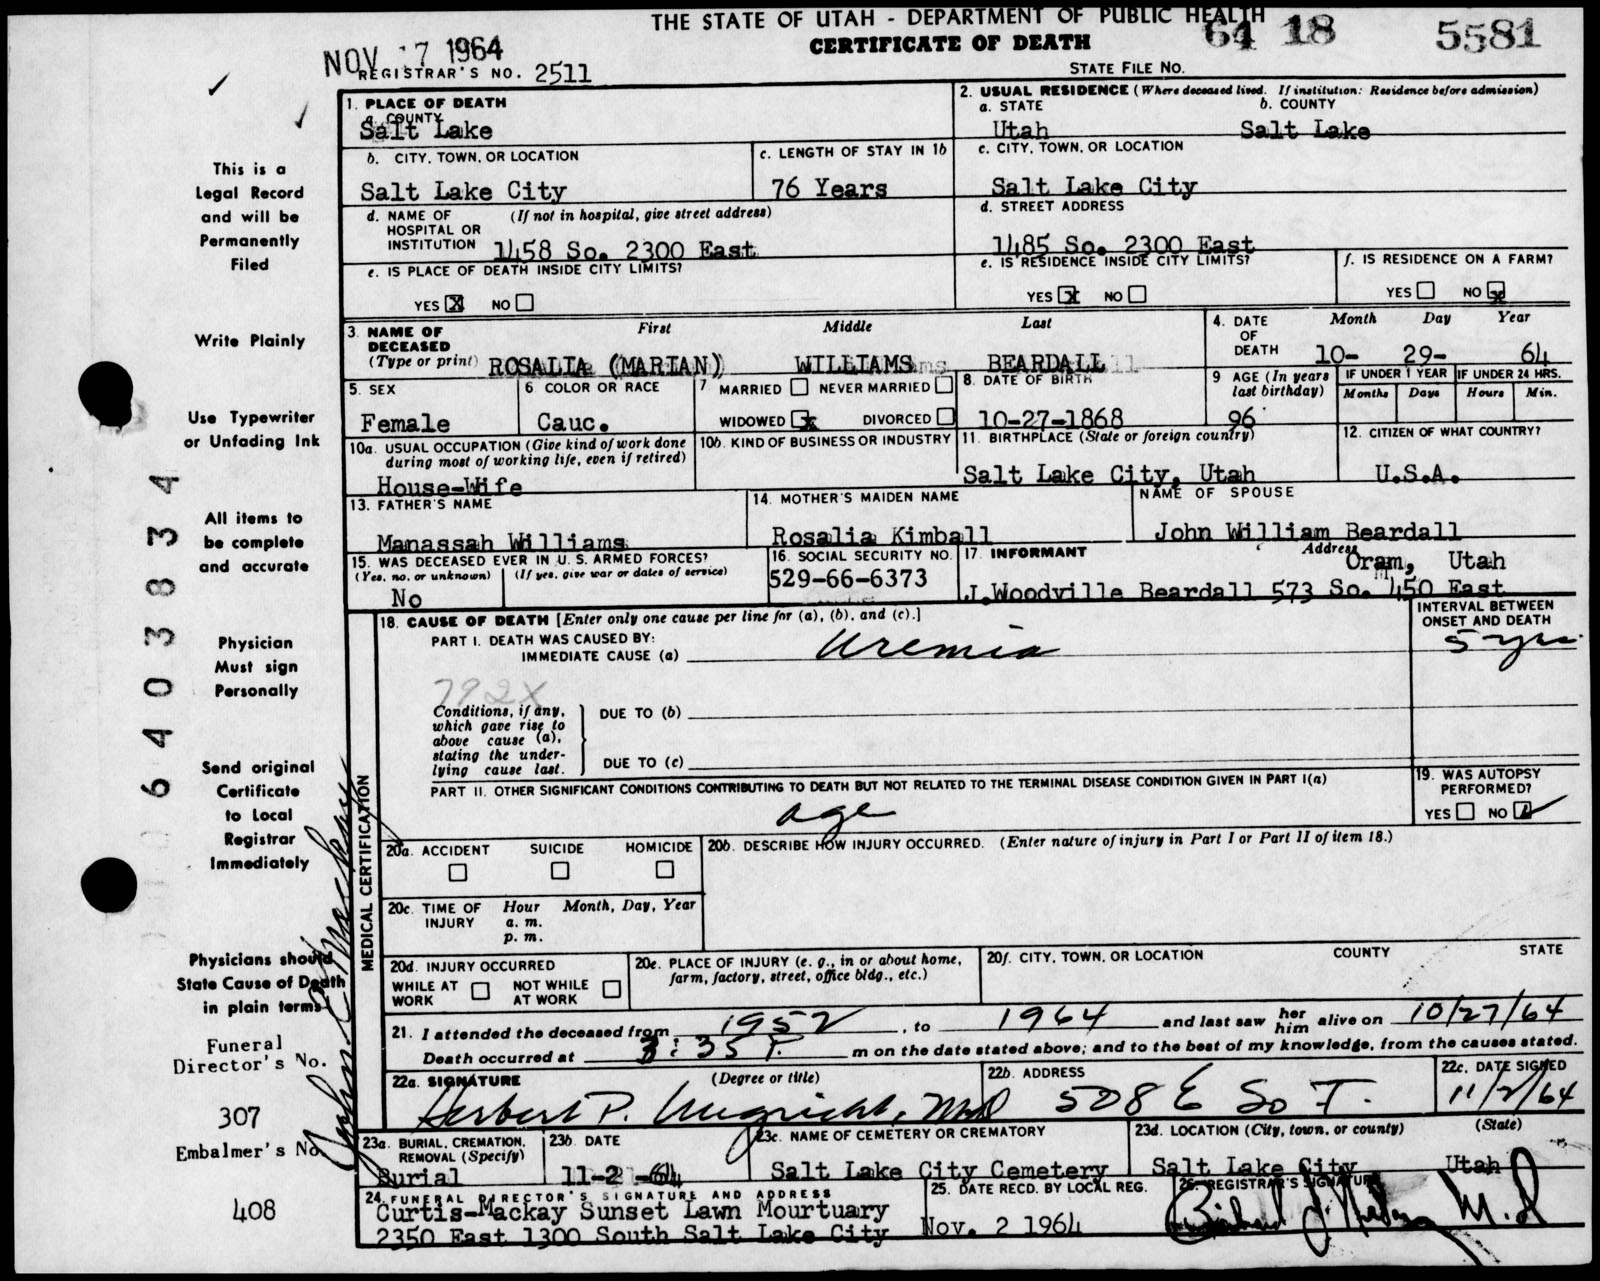 THE STATE OF UTAH - DEPARTMENT OF PUBLIC HEALTH
CERTIFICATE OF DEATH
64 18 5581
STATE FILE NO.
NOV 17 1964
REGISTRAR'S NO. 2511
This is a
Legal Record
and will be
Permanently
Filed
Write Plainly
Use Typewriter
or Unfading Ink
All items to
be complete
and accurate
Physician
Must sign
Personally
Send original
Certificate
to Local
Registrar
Immediately
Physicians should
State Cause of Death
in plain terms
Funeral
Director's No.
307
Embalmer's No.
408
6403834
1. PLACE OF DEATH
a. COUNTY
Salt Lake
2. USUAL RESIDENCE (Where deceased lived. If institution: Residence before admission)
a. STATE b. COUNTY
Utah Salt Lake
b. CITY, TOWN, OR LOCATION
Salt Lake City
c. LENGTH OF STAY IN 1b
76 Years
c. CITY, TOWN, OR LOCATION
Salt Lake City
d. NAME OF (If not in hospital, give street address)
HOSPITAL OR
INSTITUTION 1458 So. 2300 East
d. STREET ADDRESS
1485 So. 2300 East
e. IS PLACE OF DEATH INSIDE CITY LIMITS?
YES X NO
e. IS RESIDENCE INSIDE CITY LIMITS?
YES X NO
f. IS RESIDENCE ON A FARM?
YES NO X
3. NAME OF
DECEASED
(Type or print)
First Middle Last
ROSALIA (MARIAN) WILLIAMS BEARDALL
4. DATE
OF
DEATH
Month Day Year
10- 29- 64
5. SEX
Female
6. COLOR OR RACE
Cauc.
7. MARRIED NEVER MARRIED
WIDOWED X DIVORCED
8. DATE OF BIRTH
10-27-1868
9. AGE (In years
last birthday)
96
IF UNDER 1 YEAR
Months Days
IF UNDER 24 HRS.
Hours Min.
10a. USUAL OCCUPATION (Give kind of work done
during most of working life, even if retired)
House-Wife
10b. KIND OF BUSINESS OR INDUSTRY
11. BIRTHPLACE (State or foreign country)
Salt Lake City, Utah
12. CITIZEN OF WHAT COUNTRY?
U.S.A.
13. FATHER'S NAME
Manassah Williams
14. MOTHER'S MAIDEN NAME
Rosalia Kimball
NAME OF SPOUSE
John William Beardall
15. WAS DECEASED EVER IN U. S. ARMED FORCES?
(Yes, no, or unknown) (If yes, give war or dates of service)
No
16. SOCIAL SECURITY NO.
529-66-6373
17. INFORMANT Address
Oram, Utah
J.Woodville Beardall 573 So. 450 East
MEDICAL CERTIFICATION
18. CAUSE OF DEATH [Enter only one cause per line for (a), (b), and (c).]
PART I. DEATH WAS CAUSED BY:
IMMEDIATE CAUSE (a) Uremia
INTERVAL BETWEEN
ONSET AND DEATH
5 yrs
792X
Conditions, if any,
which gave rise to
above cause (a),
stating the under-
lying cause last.
DUE TO (b)
DUE TO (c)
PART II. OTHER SIGNIFICANT CONDITIONS CONTRIBUTING TO DEATH BUT NOT RELATED TO THE TERMINAL DISEASE CONDITION GIVEN IN PART I(a)
age
19. WAS AUTOPSY
PERFORMED?
YES NO
20a. ACCIDENT SUICIDE HOMICIDE
20b. DESCRIBE HOW INJURY OCCURRED. (Enter nature of injury in Part I or Part II of item 18.)
20c. TIME OF Hour Month, Day, Year
INJURY a. m.
p. m.
20d. INJURY OCCURRED
WHILE AT NOT WHILE
WORK AT WORK
20e. PLACE OF INJURY (e. g., in or about home,
farm, factory, street, office bldg., etc.)
20f. CITY, TOWN, OR LOCATION COUNTY STATE
21. I attended the deceased from 1952, to 1964 and last saw her him alive on 10/27/64
Death occurred at 3:35 P. m on the date stated above; and to the best of my knowledge, from the causes stated.
22a. SIGNATURE (Degree or title)
Herbert P. MD
22b. ADDRESS
508 E So T.
22c. DATE SIGNED
11/2/64
23a. BURIAL, CREMATION,
REMOVAL (Specify)
Burial
23b. DATE
11-2-64
23c. NAME OF CEMETERY OR CREMATORY
Salt Lake City Cemetery
23d. LOCATION (City, town, or county) (State)
Salt Lake City Utah
24. FUNERAL DIRECTOR'S SIGNATURE AND ADDRESS
Curtis-Mackay Sunset Lawn Mourtuary
2350 East 1300 South Salt Lake City
25. DATE RECD. BY LOCAL REG.
Nov. 2 1964
26. REGISTRAR'S SIGNATURE
M.D
John Mackay